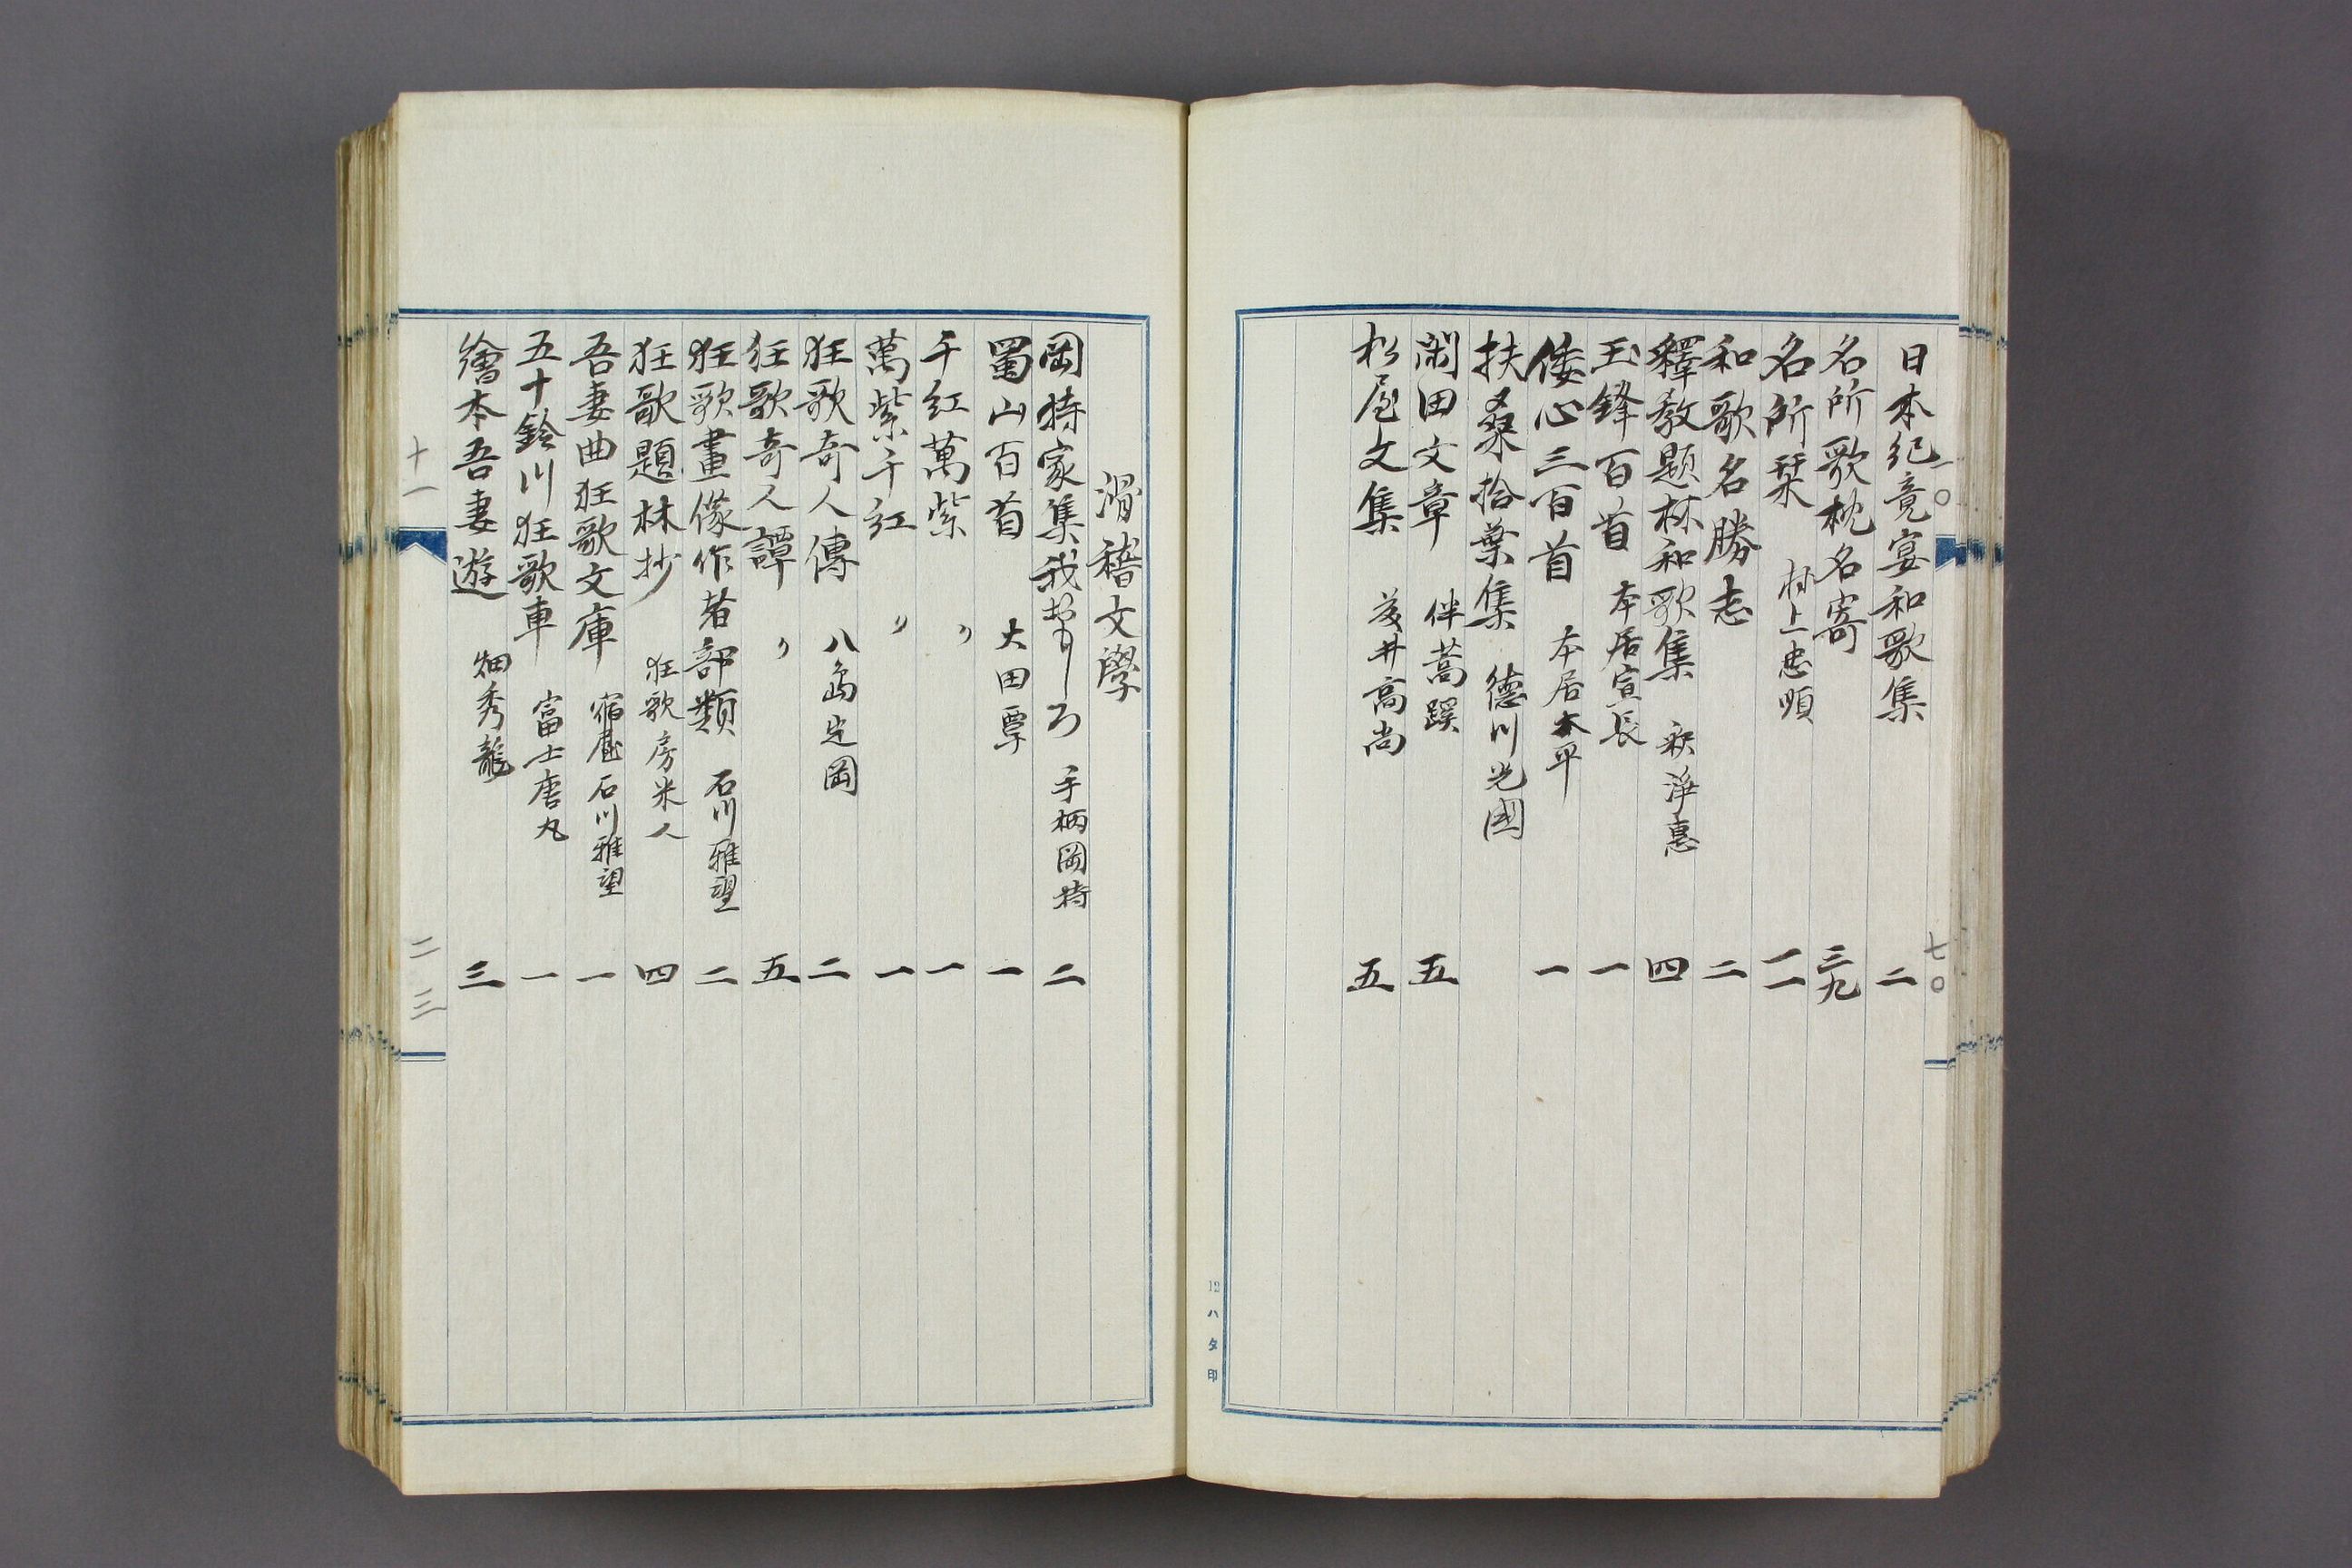 一〇
七〇
日本紀竟宴和歌集 二
名所歌枕名寄 三九
名所栞 村上忠順 二一
和歌名勝志 二
釋教題林和歌集 釈淨惠 四
玉鋒百首 本居宣長 一
倭心三百首 本居大平 一
扶桑拾葉集 德川光國
閑田文章 伴蒿蹊 五
松屋文集 藤井高尚 五
12ハタ印
滑稽文學
岡持家集我おもしろ 手柄岡持 二
蜀山百首 大田覃 一
千紅萬紫 〃 一
萬紫千紅 〃 一
狂歌奇人傳 八島定岡 二
狂歌奇人譚 〃 五
狂歌畫像作者部類 石川雅望 二
狂歌題林抄 狂歌房米人 四
吾妻曲狂歌文庫 宿屋石川雅望 一
五十鈴川狂歌車 富士唐丸 一
繪本吾妻遊 畑秀龍 三
十一
二三